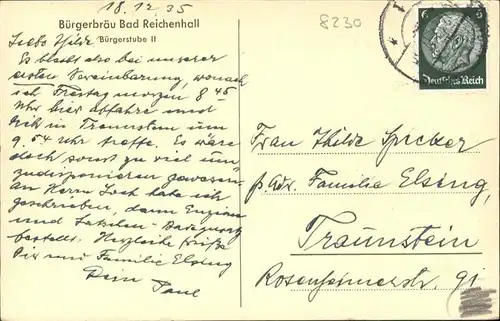 18.12.35
8230
Bürgerbräu Bad Reichenhall
Bürgerstube II
Liebe Thilde
Es bleibt also bei unserer
ersten Vereinbarung, wonach
ich Freitag morgen 8 45
Uhr hier abfahre und
Dich in Traunstein um
9.54 Uhr treffe. Es wäre
doch sonst zu viel um
zudisponieren gewesen.
An Herrn habe ich
geschrieben, dann Enzian
und
bestellt. Herzliche Grüße
Dir und Familie Elsing
Dein Paul
6 6
Deutsches Reich
Frau Thilde Spicker
p Adr. Familie Elsing,
Traunstein
Rosenheimerstr. 91